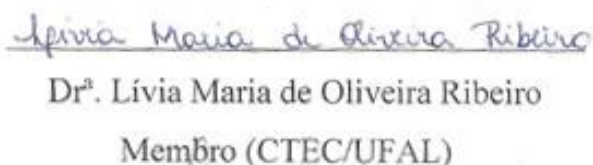 Lívia Maria de Oliveira Ribeiro
Drª. Lívia Maria de Oliveira Ribeiro
Membro (CTEC/UFAL)